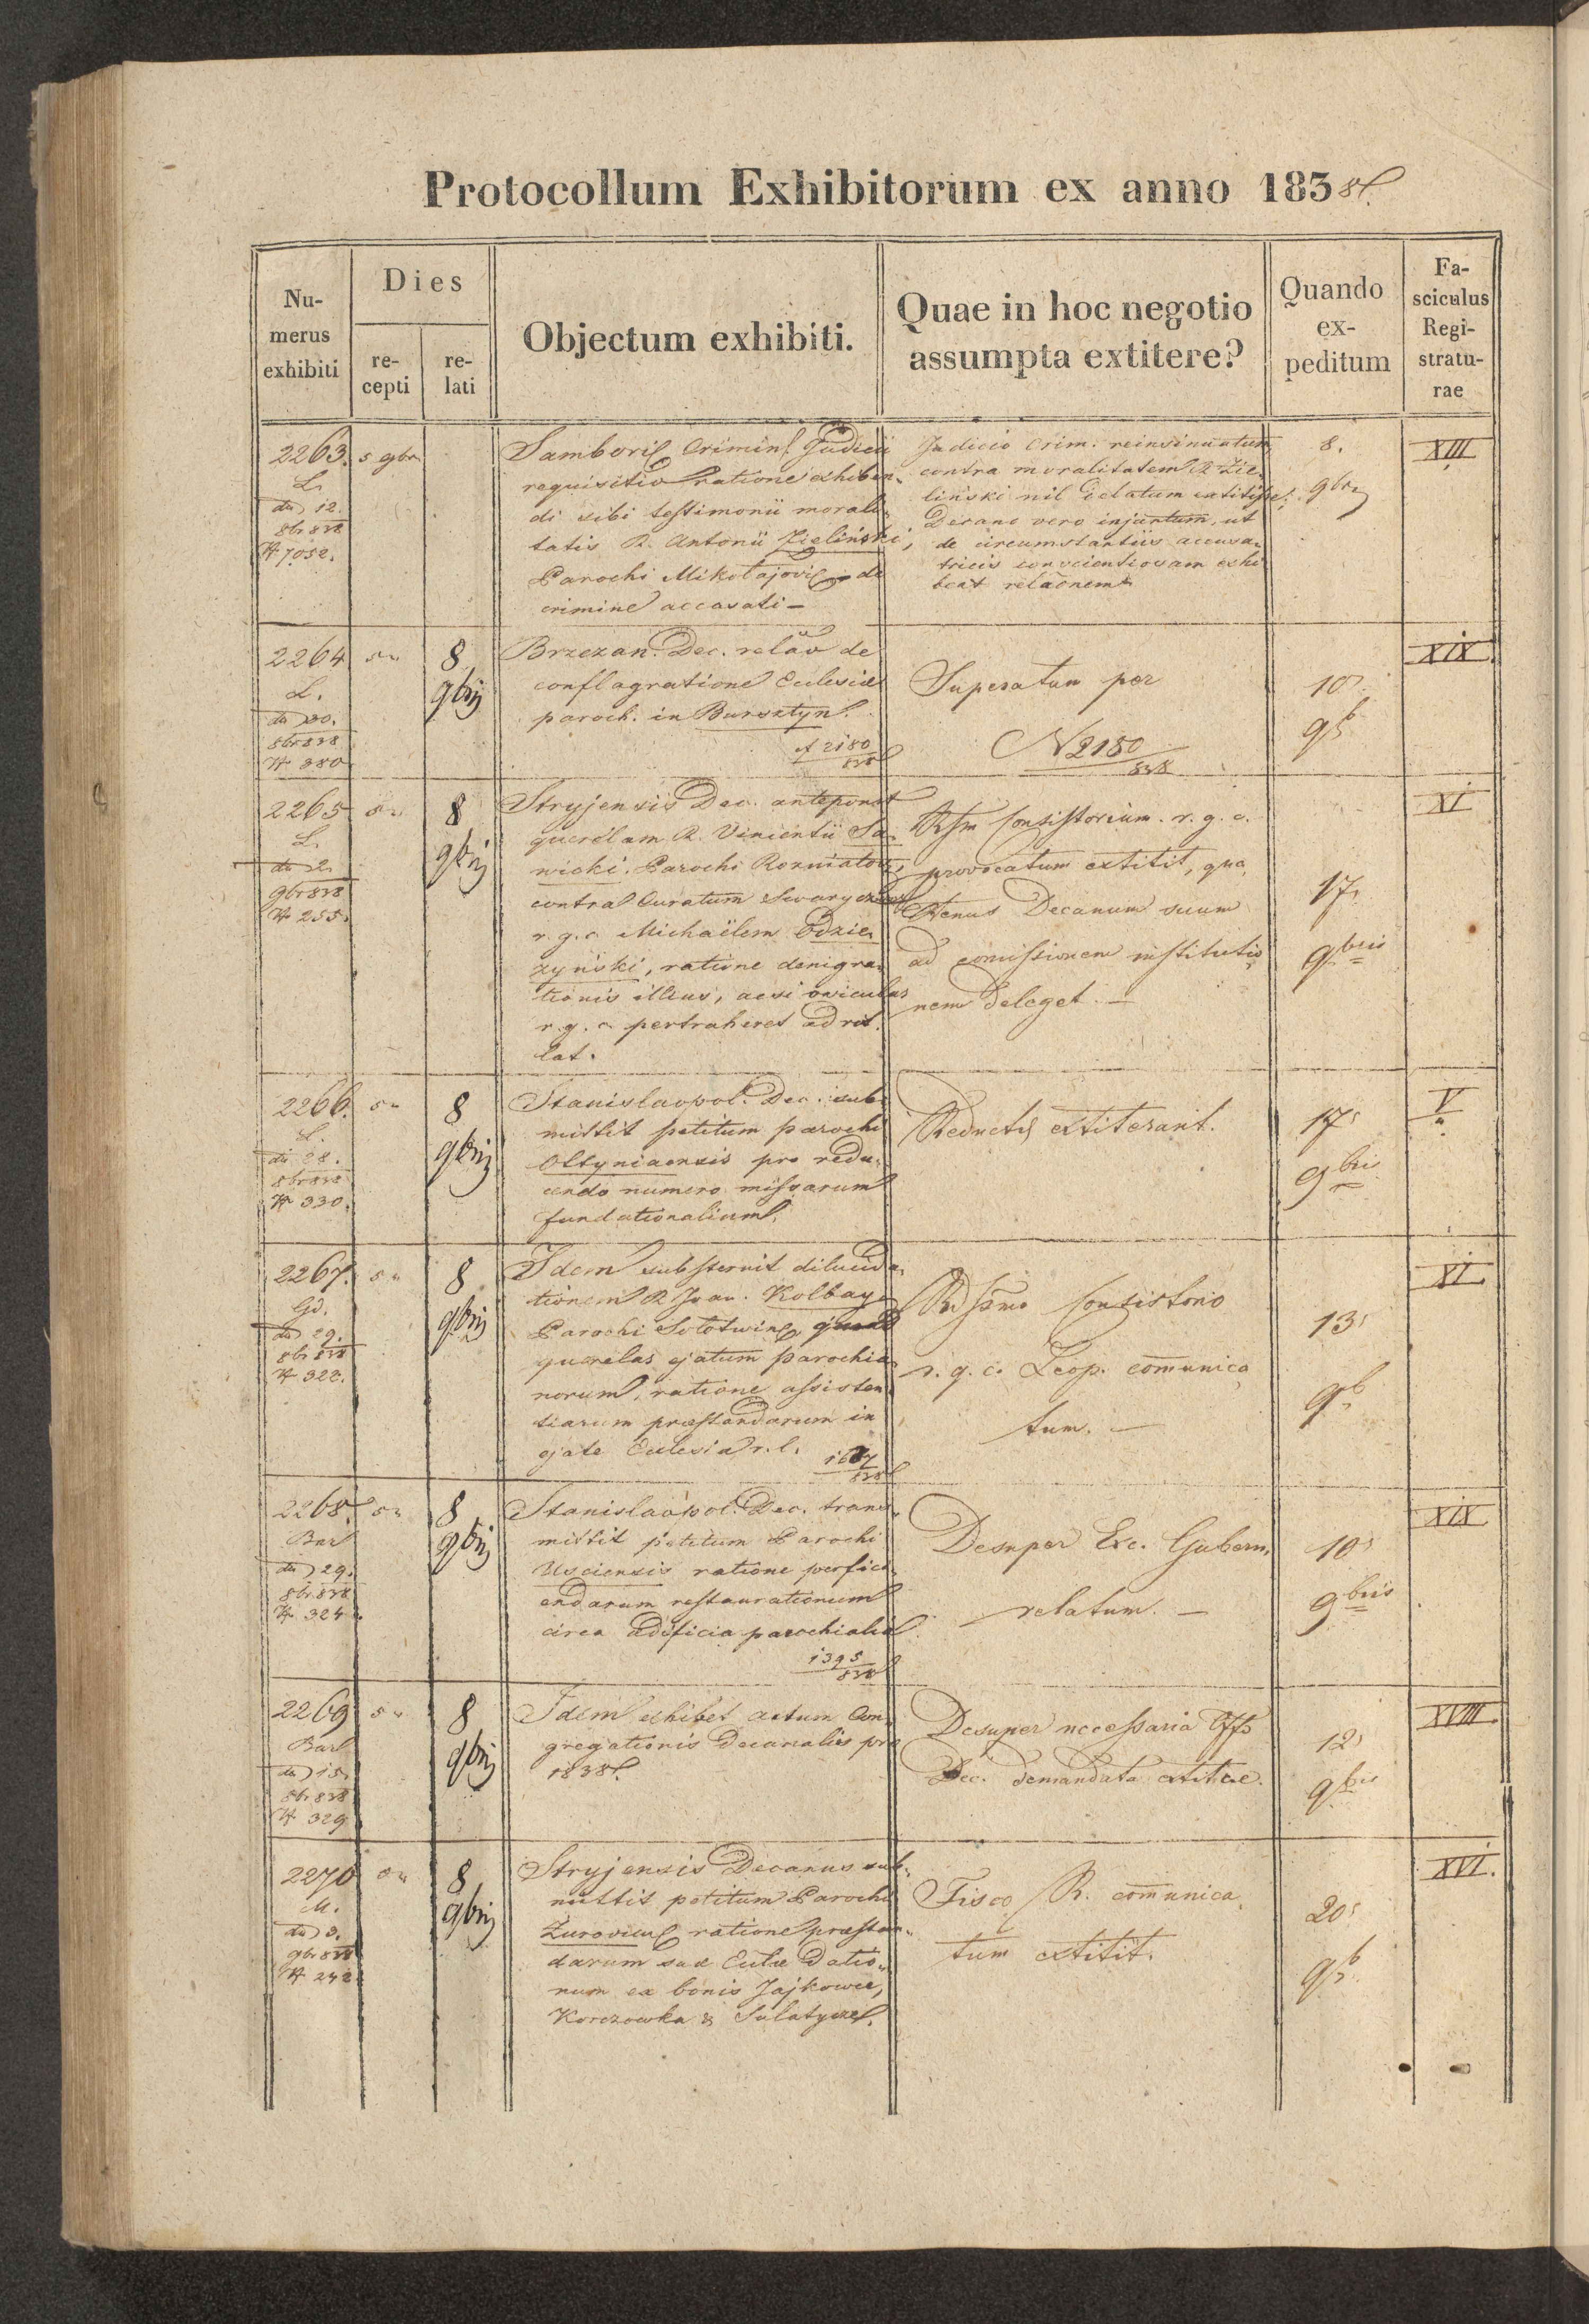 Protocollum Exhibitorum ex anno 1838.
Nu-
merus
exhibiti
Dies
re-
cepti
re-
lati
Objectum exhibiti.
Quae in hoc negotio
assumpta extitere?
Quando
ex-
peditum
Fa-
sciculus
Regi-
stratu-
rae
2263.
L.
dto 12.
8br 838
N 7052.
5 9br
Samborie. Crimin. Judicii
requisitio ratione exhiben-
di sibi testimonii morali-
tatis R. Antonii Zieliński,
Parochi Mikołajovie. de
crimine accusati –
Judicio Crim. reinsinuatum
contra moralitatem R. Zie-
liński nil delatum extitisse;
Decano vero injunctum, ut
de circumstantiis accusa-
tricis conscientiosam exhi
beat relaonem
8.
9br
XIII
2264
L.
dto 30.
8br 838
N 380
5 "
8
9brij
Brzezan. Dec. relao de
conflagratione Ecclesiae
paroch. in Bursztyn.
2180
838
Superatum per
N 2180
838
10
9b
XIX.
2265
L.
dto 2
9br 838
N 255.
5 "
8
9brij
Stryjensis Dec. anteponit
querelam R. Vincentii Sa-
wicki, Parochi Rozniatov.
contra Curatum
r. g. c. Michaëlem Odzie-
zyński, ratione denigra-
tionis illius, acsi oviculas
r. g. c. pertraheret ad rit.
lat.
Rssm Consistorium r. g. c.
provocatum extitit, qua
tenus Decanum suum
ad comissionem institutio
nem deleget. –
17
9bris
XI
2266.
L.
dto 28.
8br 838
N 330.
5 "
8
9brij
Stanislaopol. Dec. sub-
mittit petitum parochi
Ottyniaensis pro redu-
cendo numero missarum
fundationalium.
Reducta extiterant.
17
9bris
V
2267.
Gd.
dto 29.
8br 838
N 322.
5 "
8
9brij
Idem substernit dilucida-
tionem R. Joan. Kolbay
Parochi Sołotwin.
querelas ejatum parochia-
norum, ratione assisten-
tiarum praestandarum in
ejate Ecclesia r. l.
838
Rdssmo Consistorio
r. g. c. Leop. comunica
tum. –
13
9b
XI
2268.
Bar
dto 29.
8br 838
N 324.
5 "
8
9brij
Stanislaopol. Dec. trans-
mittit petitum Parochi
Usciensis ratione perfici-
endarum restaurationum
circa aedificia parochialia
1395
838
Desuper Exc. Gubern.
relatum. –
10
9bris
XIX
2269
Bar
dto 15
8br 838
N 329
5 "
8
9brij
Idem exhibet actum Con-
gregationis Decanalis pro
1838.
Desuper necessaria Offo
Dec. demandata extitere.
12
9bris
XVIII.
2270
M.
dto 3.
9br 838
N 242
5 "
8
9brij
Stryjensis Decanus sub-
mittit petitum Parochi
Zurovien. ratione praestan-
darum suae Eccliae datio-
num ex bonis Jajkowce,
Korczowka & Sulatycze.
Fisco R. comunica
tum extitit.
20
9b
XVI.